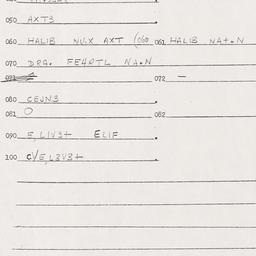 050 AXT3
060 HALIB NU.X AXT (060 061 HALIB NA+.N
070 DRA. FE4DTL NA.N
071 072 —
080 CEJN3
081 O 082
090 E,LIV3+ ELIF
100 C/E,L3V3+